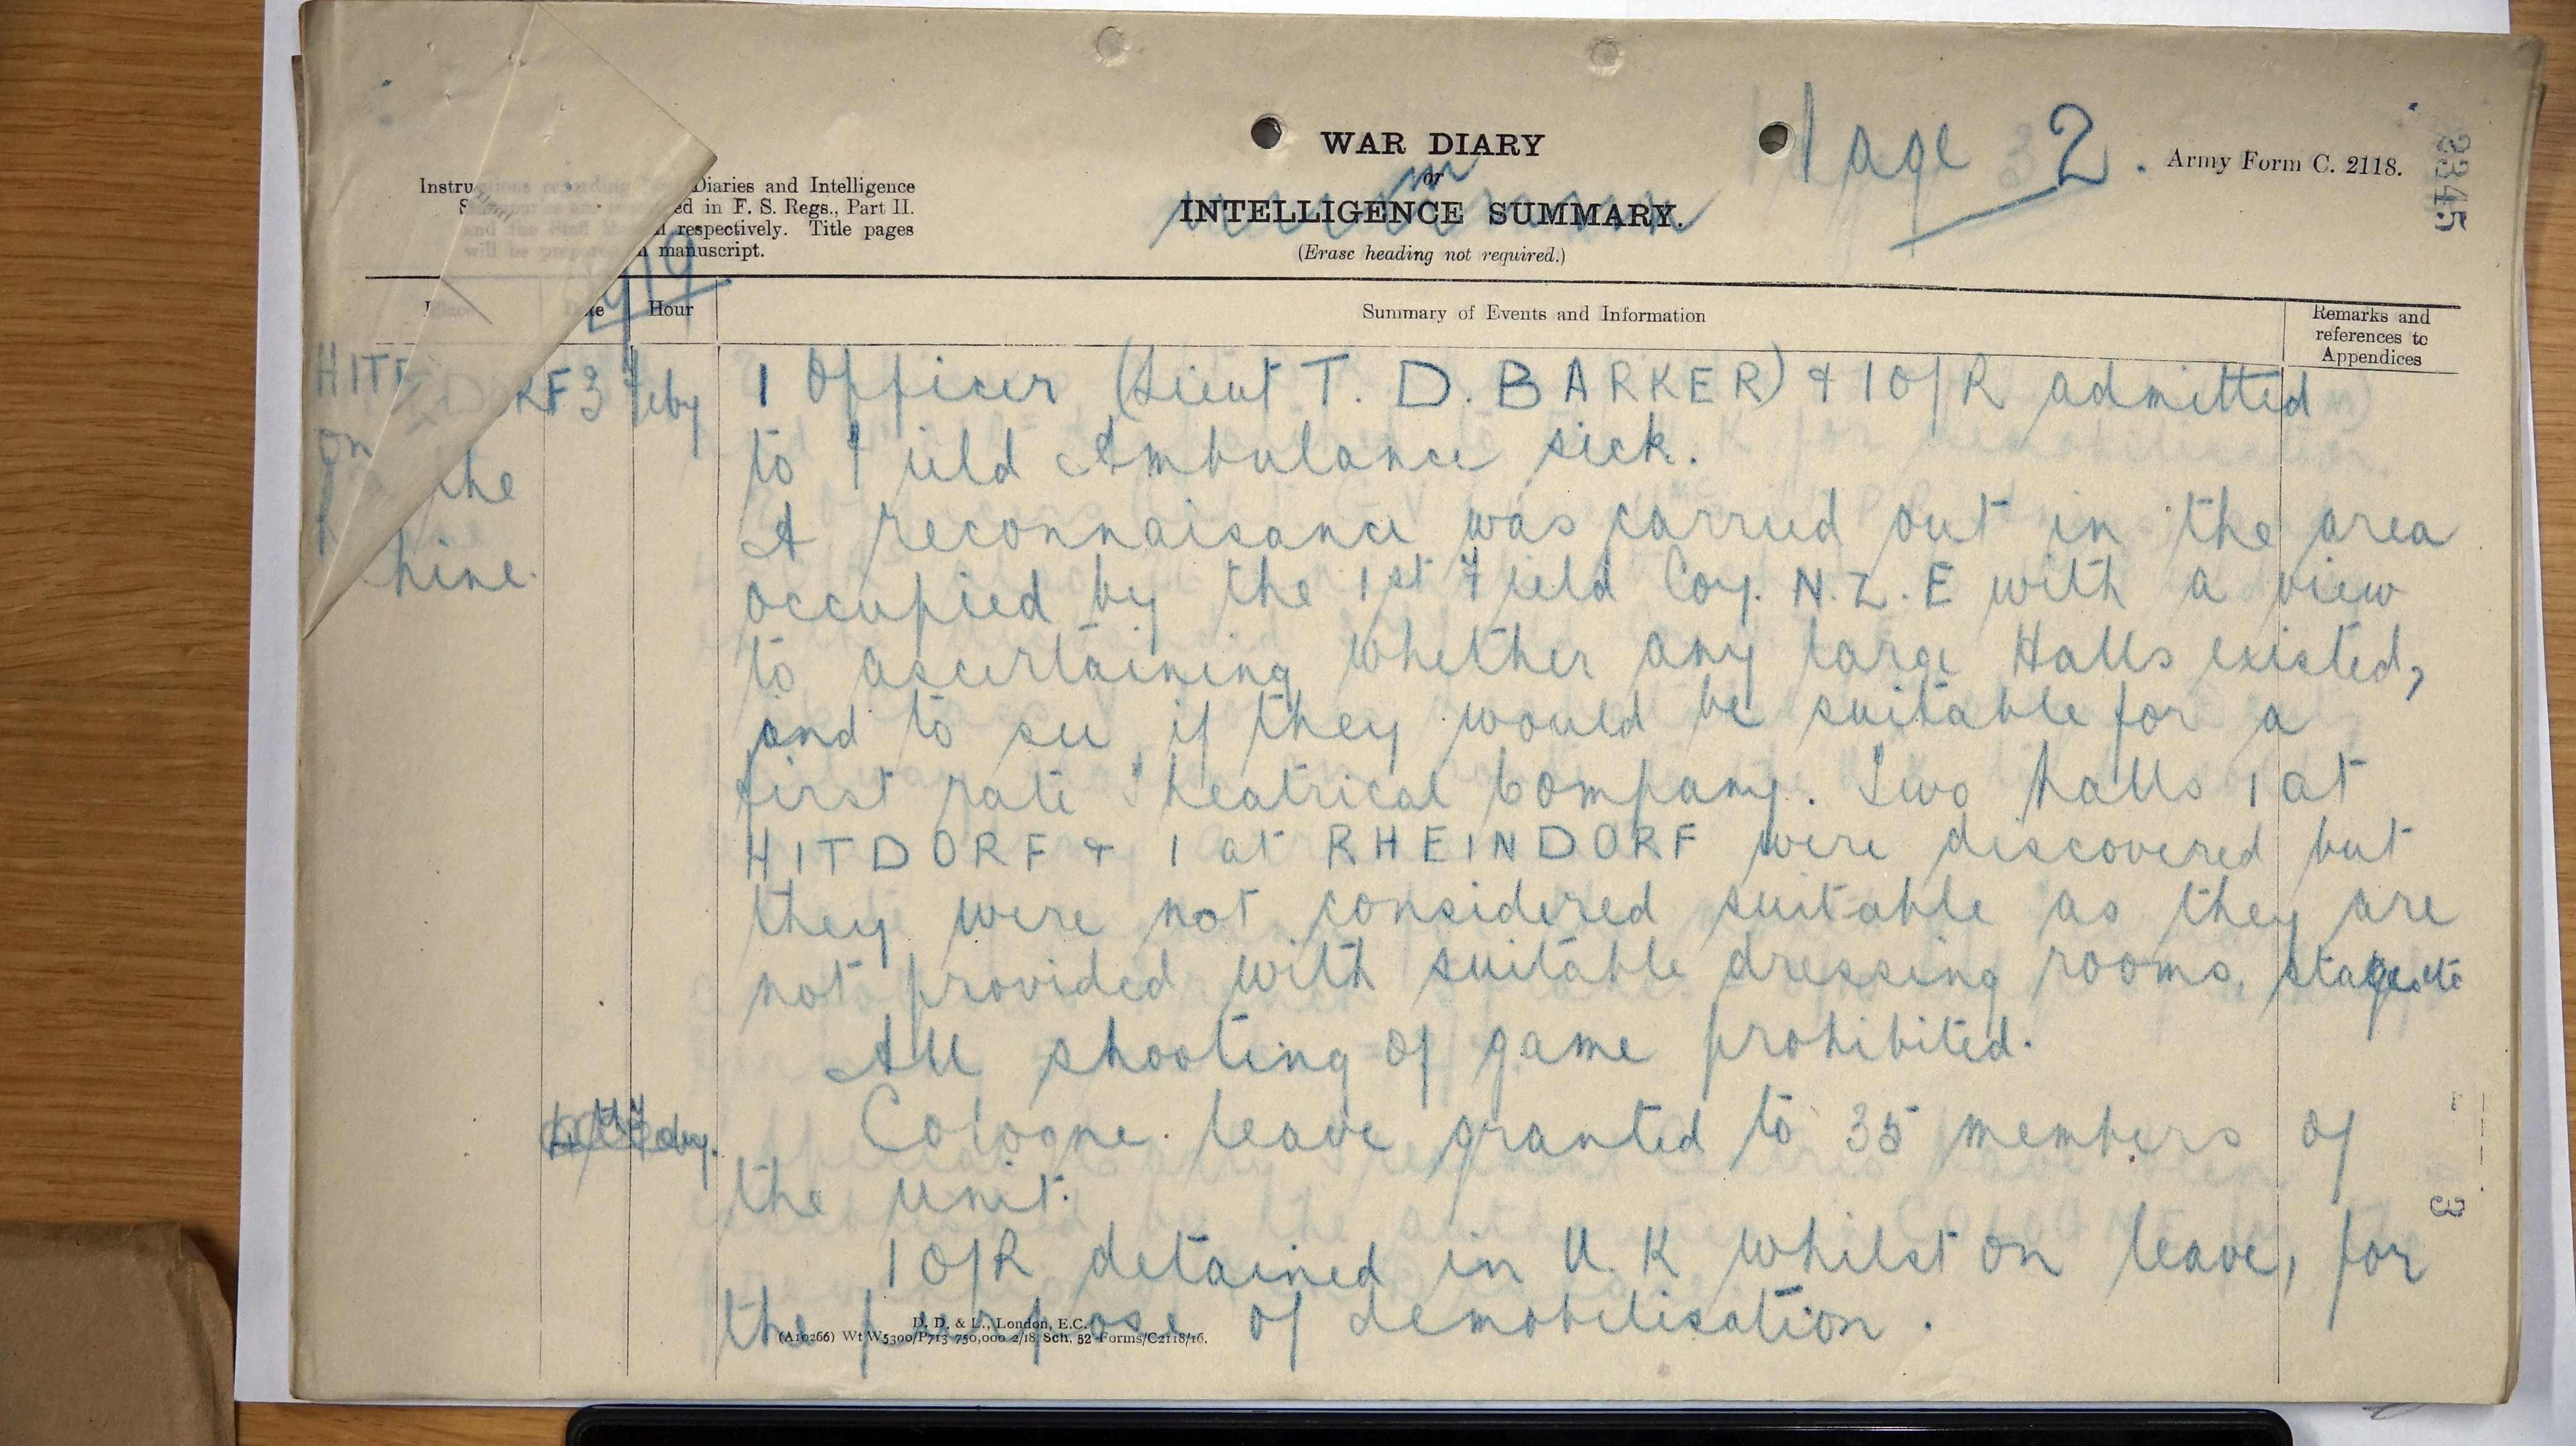 WAR DIARY
or
INTELLIGENCE SUMMARY.
(Erase heading not required.)
Page 2.
Army Form C. 2118.
3345
Diaries and Intelligence
ed in F. S. Regs., Part II.
respectively. Title pages
manuscript.
1919
Hour
Summary of Events and Information
Remarks and
references to
Appendices
HITDORF 3 Feby
on
the
Rhine.
1 Officer (Lieut T. D. BARKER) & 1 O/R admitted
to Field Ambulance sick.
A reconnaisance was carried out in the area
occupied by the 1st Field Coy. N.Z.E with a view
to ascertaining whether any large Halls existed,
and to see if they would be suitable for a
first rate Theatrical Company. Two halls 1 at
HITDORF & 1 at RHEINDORF were discovered but
they were not considered suitable as they are
not provided with suitable dressing rooms, stage etc
All shooting of game prohibited.
Cologne leave granted to 35 members of
the unit.
1 O/R detained in U.K whilst on leave, for
the purpose of demobilisation.
D. D. & L., London, E.C.
(A10266) Wt W5300/P713 750,000 2/18 Sch. 52 Forms/C2118/16.
3